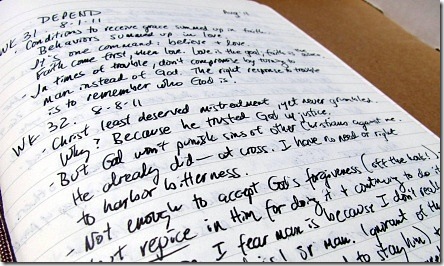 DEPEND Aug 19
8-1-11
WK 31
- Conditions to receive grace summed up in faith
Behaviors summed up in love.
It's one command; believe + love.
Faith come first, then love. Love is the goal; faith is the
- In times of trouble, don't compromise by turning to
man instead of God. The right response to trouble
is to remember who God is.
WK 32. 8-8-11
- Christ least deserved mistreatment, yet never grumbled.
Why? Because he trusted God w/ justice.
- But God won't punish sins of other Christians against me.
He already did— at cross. I have no need or right
to harbor bitterness.
- Not enough to accept God's forgiveness (off the hook!)
but rejoice in Him for doing it + continuing to do it
I fear man is because I don't
or man. (ignorant of the
to stay